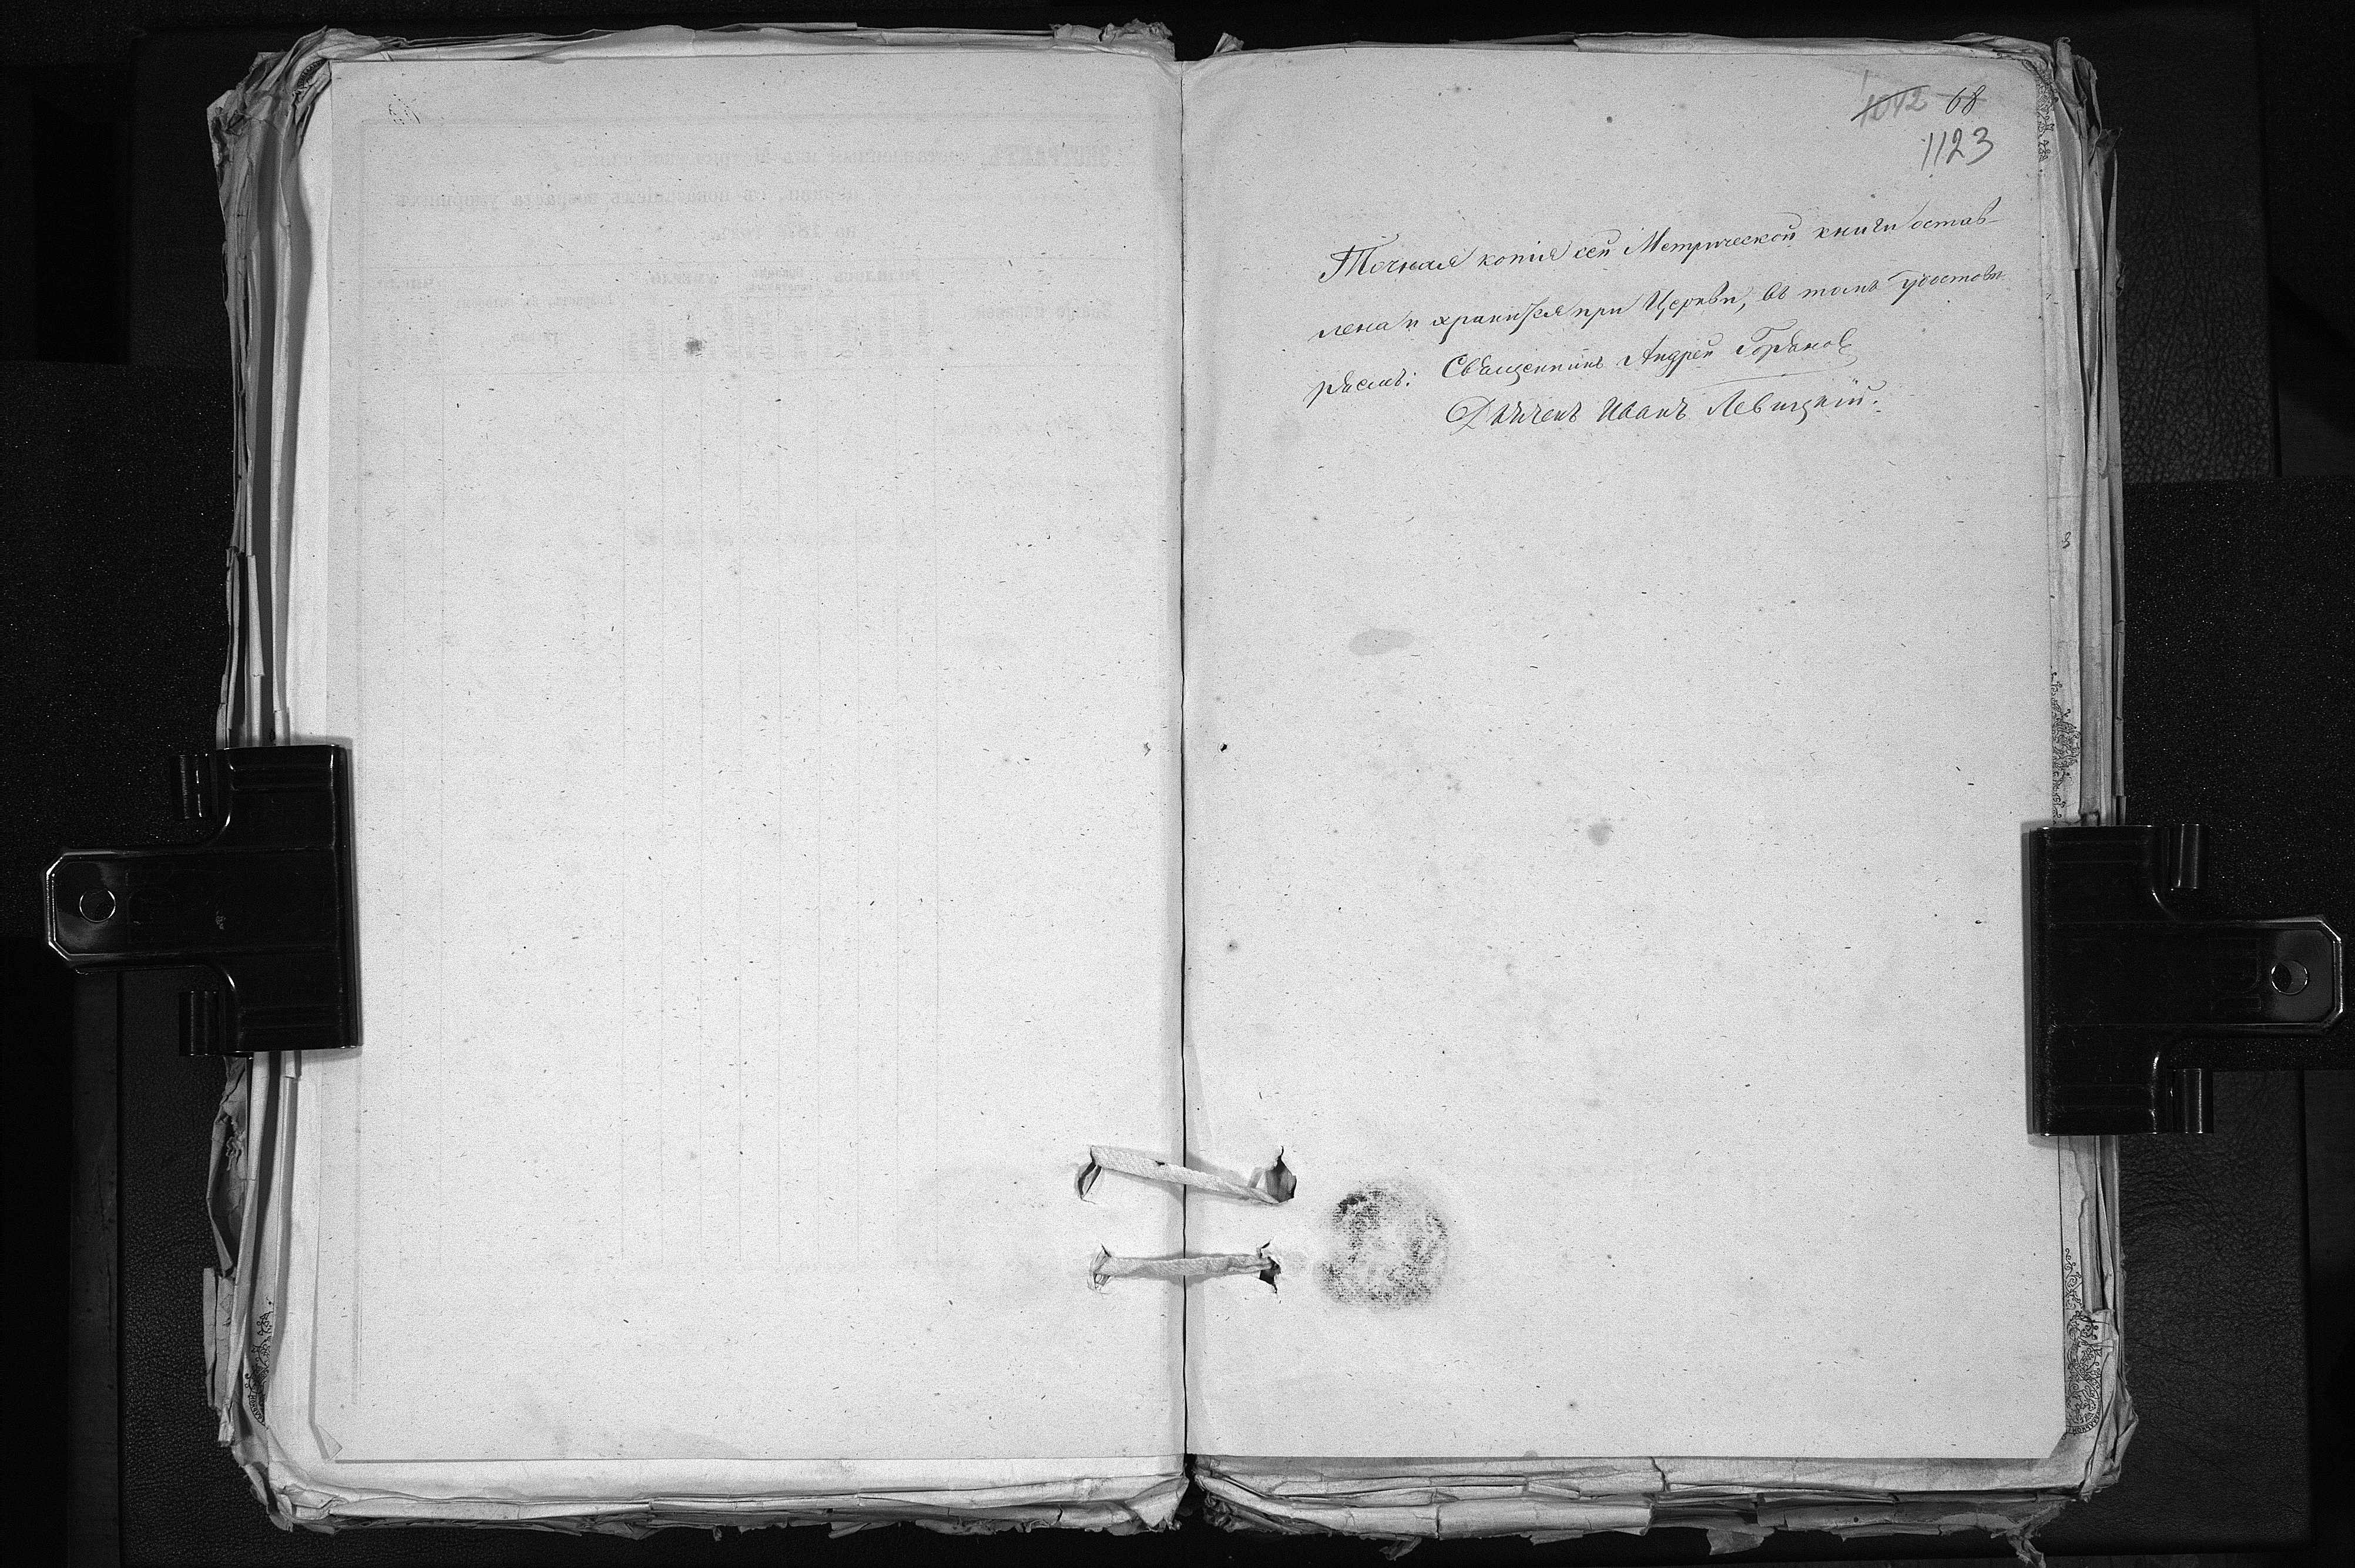 1042 68
1123
Точная копія сей Метрической книги остав-
лена и хранится при Церкви, въ томъ удостовѣ-
ряемъ: Священникъ Андрей
Дьячекъ Иванъ Левицкій.